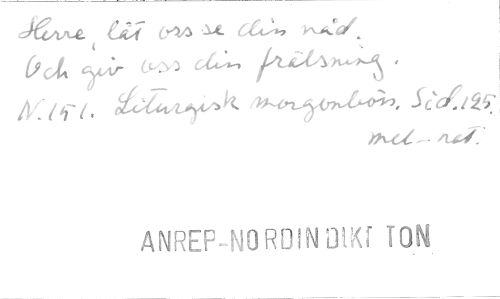 Herre, låt oss se din nåd.
Och giv oss din frälsning.
N. 151. Liturgisk morgonbön. Sid. 195.
mel-not.
ANREP-NORDIN DIKT TON